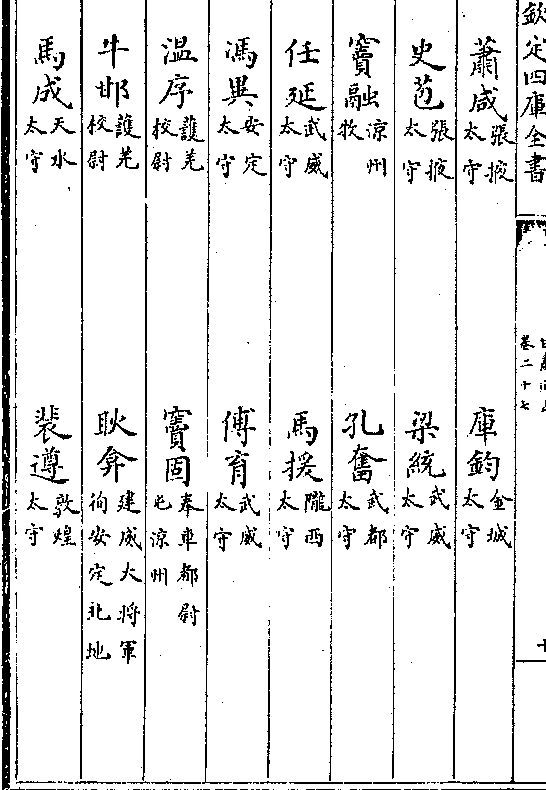 欽定四庫全書
卷二十七
蕭咸張掖太守
庫鈞金城太守
史苞張掖太守
梁統武威太守
竇融涼州牧
孔奮武都太守
任延武威太守
馬援隴西太守
馮異安定太守
傅育武威太守
溫序護羌校尉
竇固奉車都尉屯涼州
牛邯護羌校尉
耿弇建威大將軍徇安定北地
馬成天水太守
裴遵敦煌太守